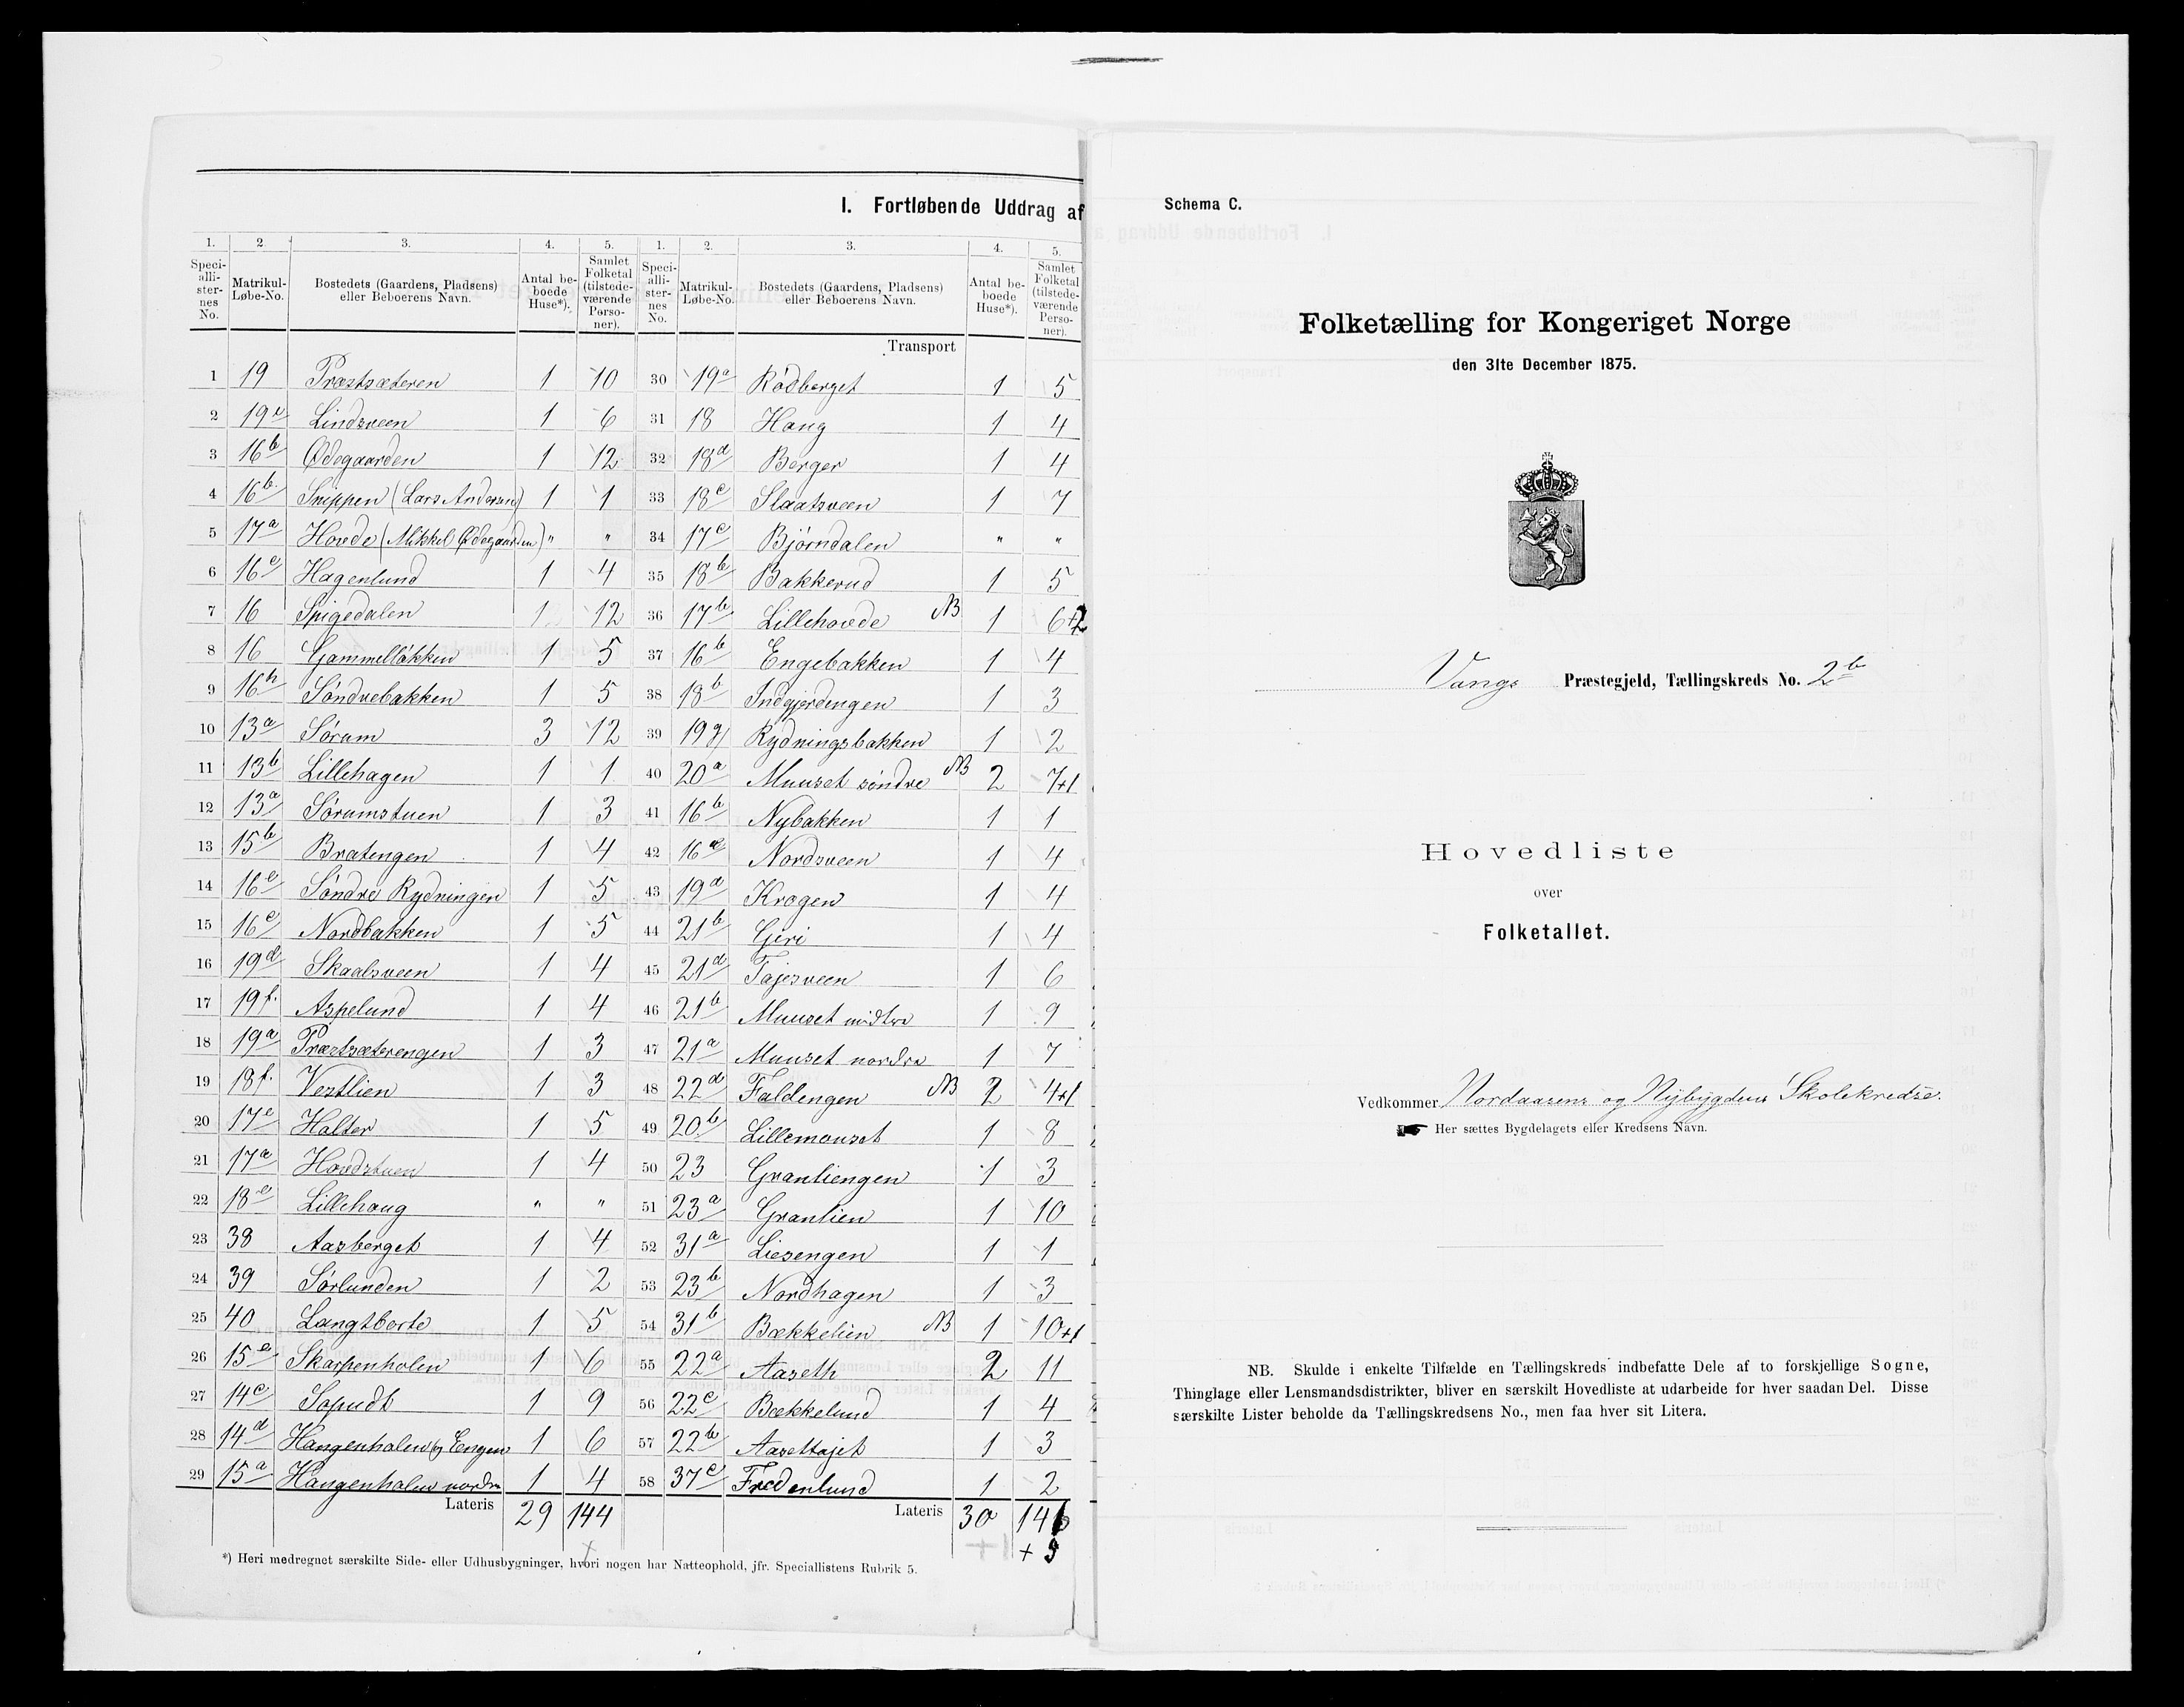 I. Fortløbende Uddrag af
1. 2. 3. 4. 5. 1. 2. 3. 4. 5.
Specialli-sternes No. Matrikul-Løbe-No. Bostedets (Gaardens, Pladsens) eller Beboerens Navn. Antal beboede Huse*). Samlet Folketal (tilstedeværende Personer). Specialli-sternes No. Matrikul-Løbe-No. Bostedets (Gaardens, Pladsens) eller Beboerens Navn. Antal beboede Huse*). Samlet Folketal (tilstedeværende Personer).
Transport
1 19 Præstsæteren 1 10 30 19a Rødberget 1 5
2 19e Lindsveen 1 6 31 18 Haug 1 4
3 16b Ødegaarden 1 12 32 18d Berger 1 4
4 16b. Snippen (Lars Andersen) 1 1 33 18c Slaatsveen 1 7
5 17a Hovde (Mikkel Ødegaarden) " " 34 17c Bjørndalen " "
6 16e Hagenlund 1 4 35 18b Bakkerud 1 5
7 16 Spigedalen 1 12 36 17b Lillehovde NB 1 6+2
8 16 Gammelløkken 1 5 37 16b Engebakken 1 4
9 16h Søndrebakken 1 5 38 18b Indgjerdengen 1 3
10 13a Sørum 3 12 39 19g Rydningsbakken 1 2
11 13b Lillehagen 1 1 40 20a Muuset søndre NB 2 7+1
12 13a Sørumstuen 1 3 41 16b Nybakken 1 1
13 15b Bratengen 1 4 42 16 Nordsveen 1 4
14 16e Søndre Rydningen 1 5 43 19d Krogen 1 4
15 16e Nordbakken 1 5 44 21b Gjeri 1 4
16 19d Skaalsveen 1 4 45 21d Tajesveen 1 6
17 19f. Aspelund 1 4 46 21b Muuset midtre 1 9
18 19a Præstsæterengen 1 3 47 21a Muuset nordre 1 7
19 18f. Vestlien 1 3 48 22d Faldengen NB 2 4+1
20 17e Halter 1 5 49 20b Lillemouset 1 8
21 17a Hovdstuen 1 4 50 23 Granliengen 1 3
22 18e Lillehaug " " 51 23a Granlien 1 10
23 38 Aasberget 1 4 52 31a Liesengen 1 1
24 39 Sørlunden 1 2 53 23b Nordhagen 1 3
25 40 Langtborte 1 5 54 31b Bækkelien NB 1 10+1
26 15e Skarpenholen 1 6 55 22a Aaseth 2 11
27 14c Sopudt 1 9 56 22c Bækkelund 1 4
28 14d Haugenholen og Engen 1 6 57 22b Aasettajet 1 3
29 15a Haugenholen nordre 1 4 58 37c Fredenlund 1 2
Lateris 29 144 Lateris 30 146
+ 5
*) Heri medregnet særskilte Side- eller Udhusbygninger, hvori nogen har Natteophold, jfr. Speciallistens Rubrik 5.
Schema C.
Folketælling for Kongeriget Norge
den 31te December 1875.
Vangs Præstegjeld, Tællingskreds No. 2b
Hovedliste
over
Folketallet.
Vedkommer Nordaasens og Nybygdens Skolekredse.
Her sættes Bygdelagets eller Kredsens Navn.
NB. Skulde i enkelte Tilfælde en Tællingskreds indbefatte Dele af to forskjellige Sogne,
Thinglage eller Lensmandsdistrikter, bliver en særskilt Hovedliste at udarbeide for hver saadan Del. Disse
særskilte Lister beholde da Tællingskredsens No., men faa hver sit Litera.